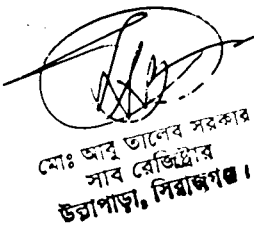 মোঃ আবু তালেব সরকার
সাব রেজিষ্ট্রার
উল্লাপাড়া, সিরাজগঞ্জ।